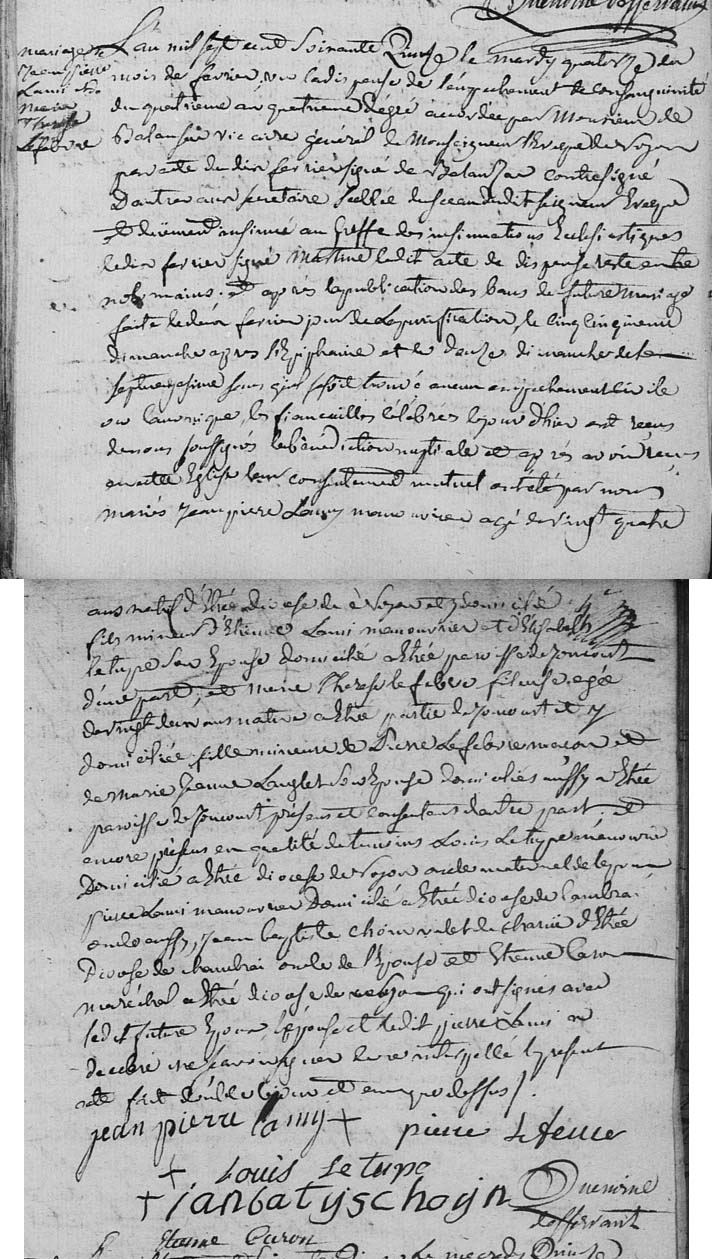 Duenoine desservant
mariage de
Jean pierre
Lami et
Marie
Therese
Lefebvre
L'an mil sept cent soixante Quinze le mardy quatorze du
mois de fevrier, vu la dispense de l'empechement de consanguinité
du quatrieme au quatrieme degré accordée par Monsieur de
vicaire général de Monseigneur l'Eveque de Noyon
par acte du dix fevrier signé de contresigné
secretaire scellée du sceau dudit seigneur Eveque
et duement insinué au Greffe des insinuations Ecclesiastiques
le dix fevrier signé ledit acte de dispense resté entre
nos mains. et après la publication des bans de futur Mariage
faite le deux fevrier jour de la purification, le cinquieme
dimanche apres l'Epiphanie et le douze dimanche de la
septuagesime sans qu'il se soit trouvé aucun empechement civile
ou canonique, les fiancailles célébrés le jour d'hier ont reçus
de nous soussignés la bénédiction nuptiale et après avoir reçus
en cette Eglise leur consentement mutuel ont été par nous
mariés Jean pierre Lamy manouvrier agé de vingt quatre
ans natif d'Etrée diocese de Noyon et y domicilié
fils mineur d'Etienne Lami manouvrier et d'Elisabeth
letupe son Epouse domicilié a Etrée paroisse de Joncourt
d'une part, et Marie Therese lefebvre fileuse agée
de vingt deux ans native a Etrée partie de Joncourt et y
domiciliée, fille mineure de Pierre Lefebvre macon et
de Marie Jeanne Langlet son Epouse domiciliés aussy a Etrée
paroisse de Joncourt présens et consentans d'autre part. et
encore présens en qualité de temoins Louis Letupe manouvrier
Domicilié a Etrée diocese de Noyon oncle maternel de l'epoux
pierre Lami manouvrier Domicilié a Etrée diocese de Cambrai
oncle aussy, Jean baptiste Choin valet de charue d'Etrée
Diocese de Cambrai oncle de l'Epouse et Etienne Caron
maréchal a Etrée diocese de Noyon qui ont signés avec
ledit futur Epoux l'Epouse et ledit pierre Lami ont
declaré ne savoir signer de ce interpellé le present
acte fait double le jour et an que dessus
jean pierre lamy + pierre lefeuer
+ Louis Letupe
+ ianbatyschoyn Duenoine
desservant
Etienne Caron